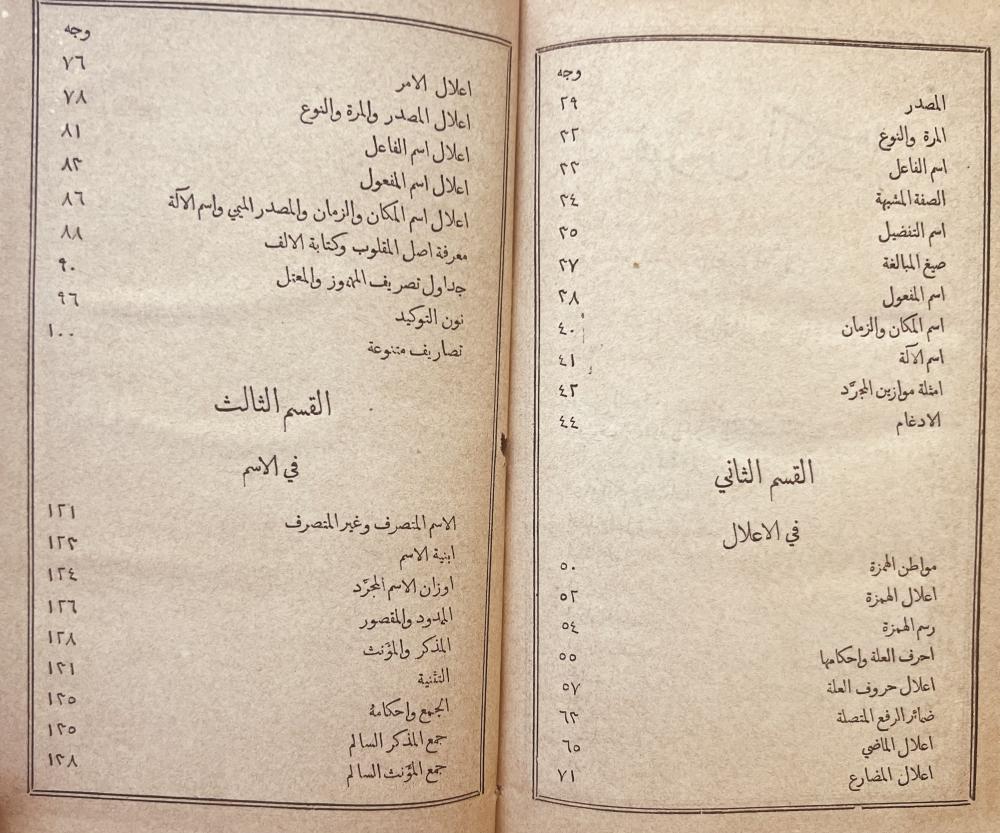 وجه
المصدر ٢٩
المرة والنوع ٣٢
اسم الفاعل ٣٣
الصفة المشبهة ٣٤
اسم التفضيل ٣٥
صيغ المبالغة ٣٧
اسم المفعول ٣٨
اسم المكان والزمان ٤٠
اسم الآلة ٤١
امثلة موازين المجرَّد ٤٣
الادغام ٤٤
القسم الثاني
في الاعلال
مواطن الهمزة ٥٠
اعلال الهمزة ٥٢
رسم الهمزة ٥٤
احرف العلة واحكامها ٥٥
اعلال حروف العلة ٥٧
ضمائر الرفع المتصلة ٦٣
اعلال الماضي ٦٥
اعلال المضارع ٧١
وجه
اعلال الامر ٧٦
اعلال المصدر والمرة والنوع ٧٨
اعلال اسم الفاعل ٨١
اعلال اسم المفعول ٨٣
اعلال اسم المكان والزمان والمصدر الميمي واسم الآلة ٨٦
معرفة اصل المقلوب وكتابة الالف ٨٨
جداول تصريف المهموز والمعتل ٩٠
نون التوكيد ٩٦
تصاريف متنوعة ١٠٠
القسم الثالث
في الاسم
الاسم المتصرف وغير المتصرف ١٢١
ابنية الاسم ١٢٣
اوزان الاسم المجرَّد ١٢٤
الممدود والمقصور ١٢٦
المذكر والمؤَنث ١٢٨
التثنية ١٣١
الجمع واحكامهُ ١٣٥
جمع المذكر السالم ١٣٥
جمع المؤَنث السالم ١٣٨